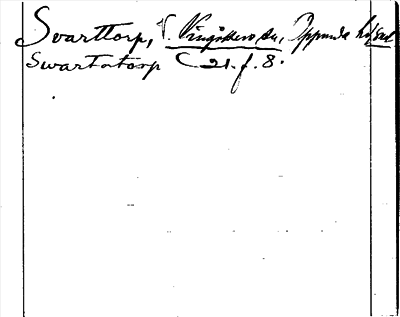 Svarttorp, V. Vingåkers sn, Oppunda hd, Södl
Swartatorp C 21. f. 8.